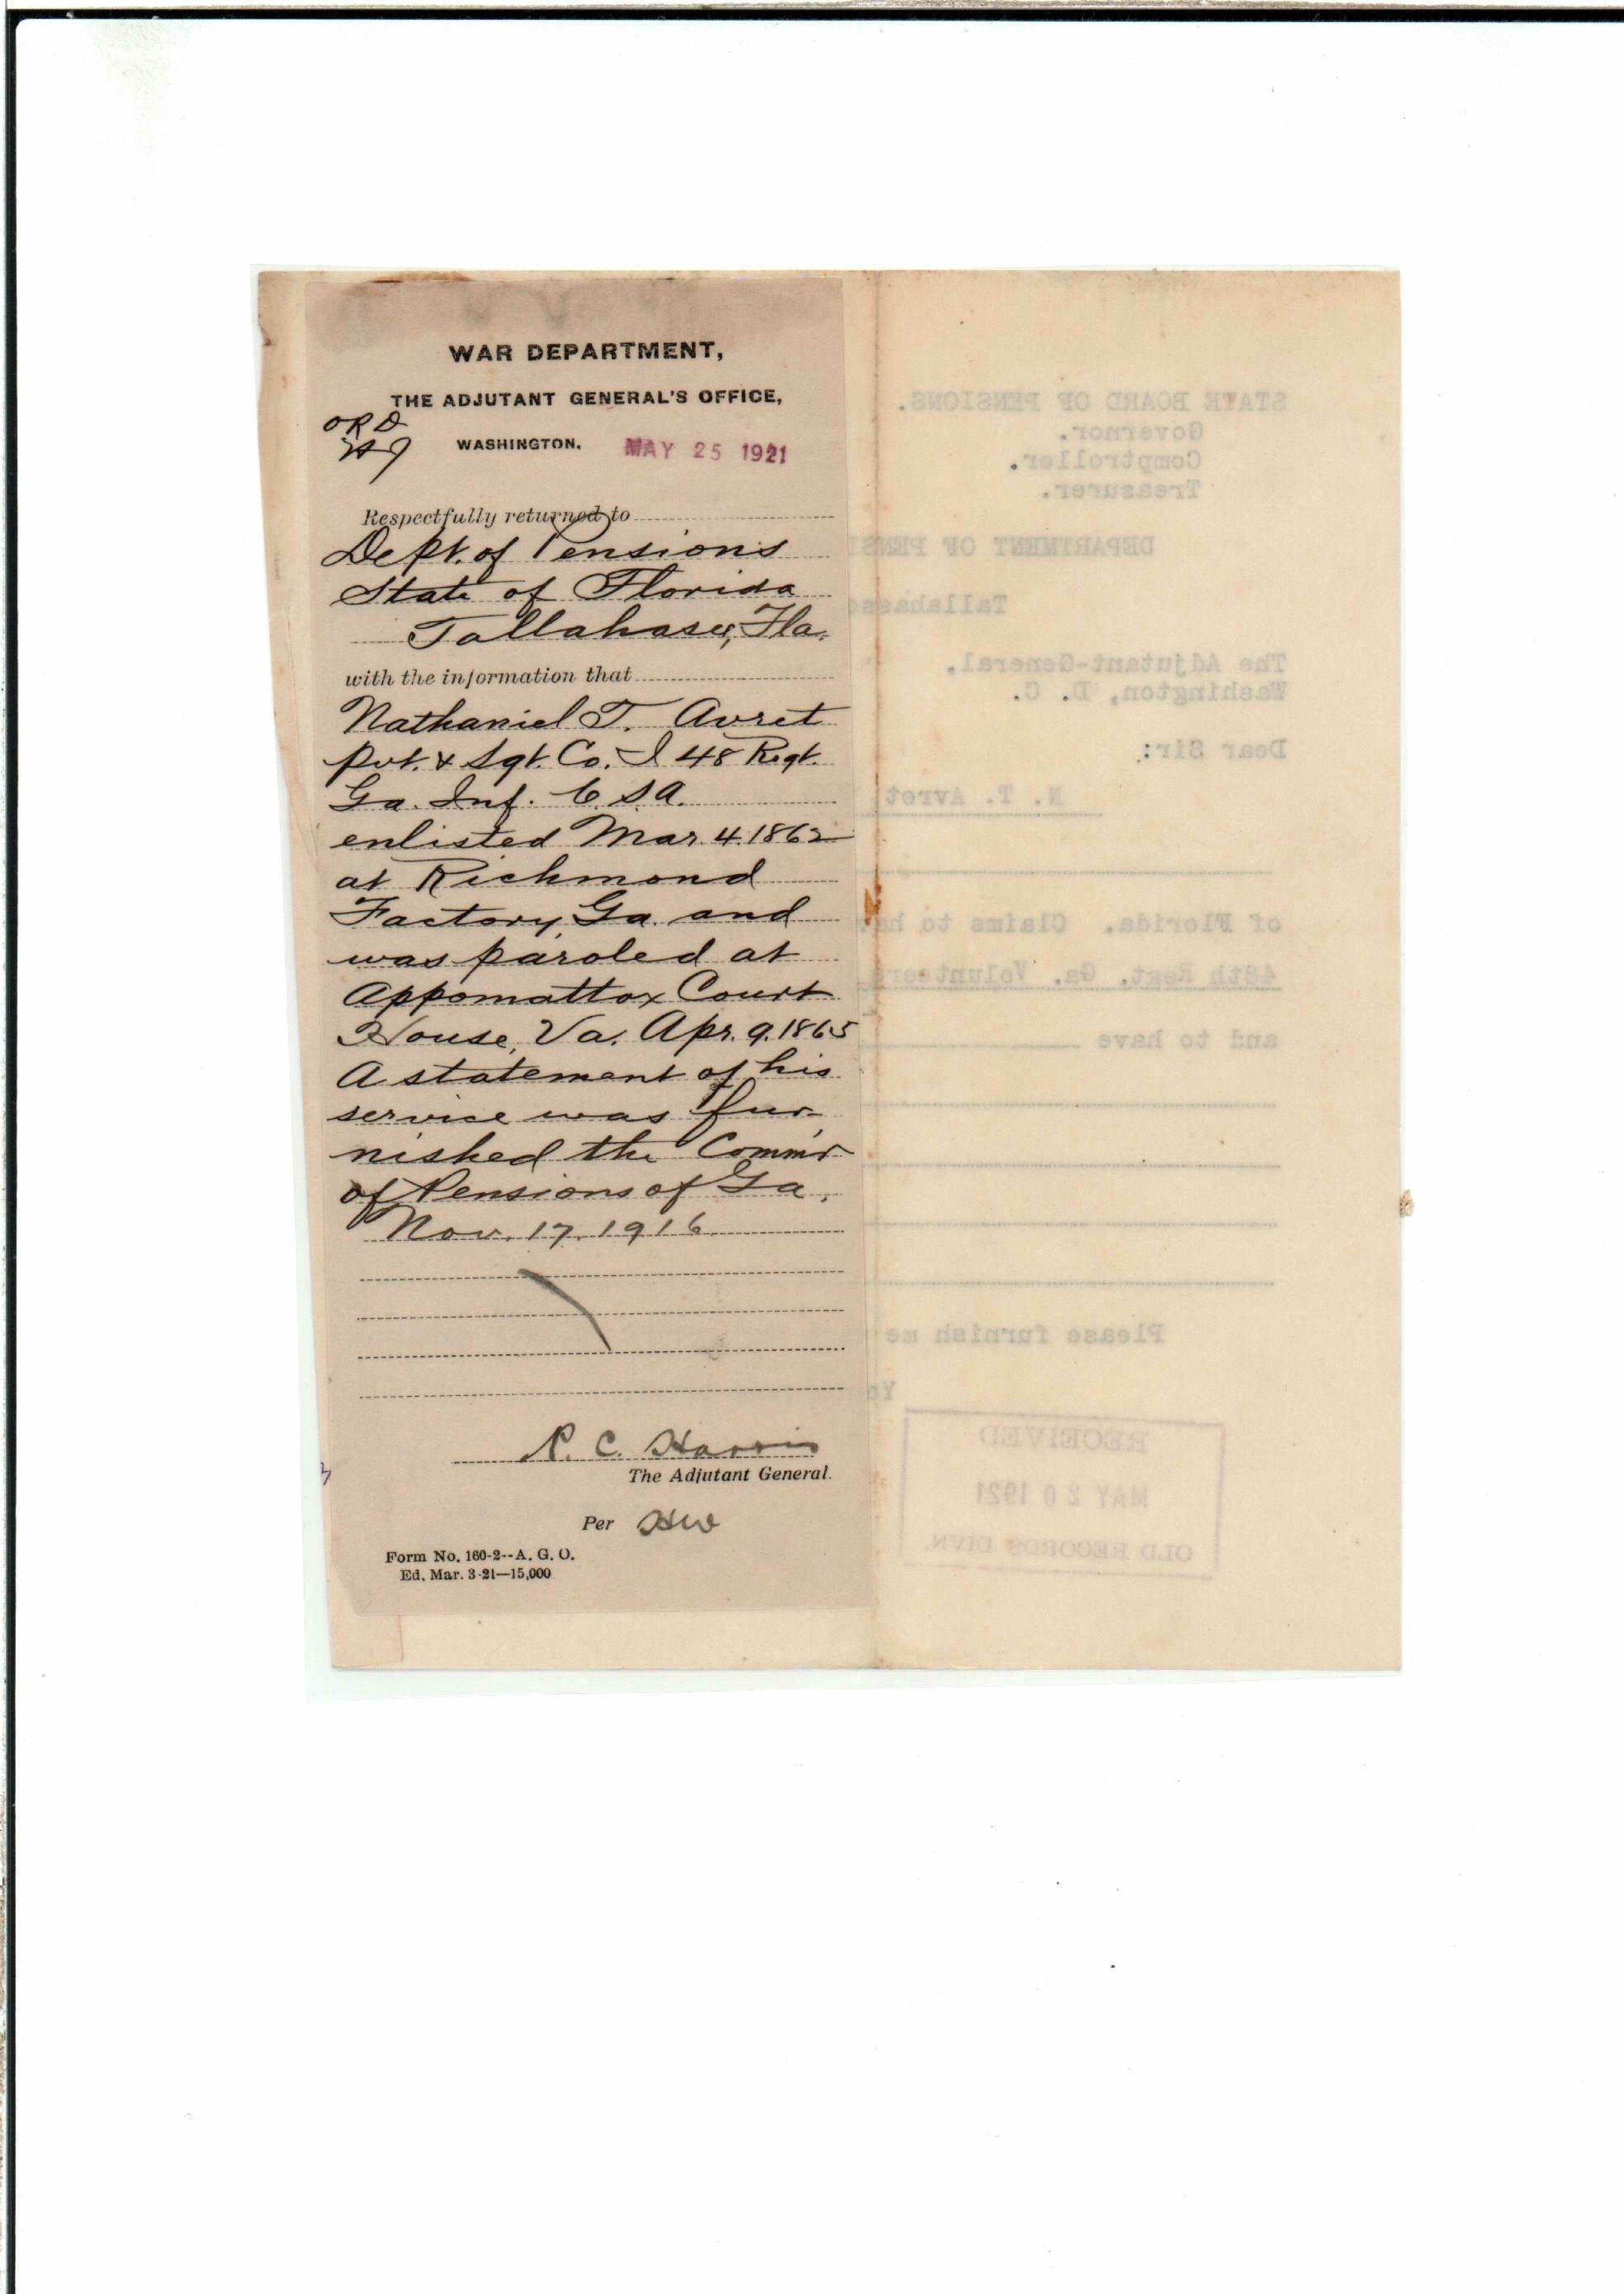 WAR DEPARTMENT,
THE ADJUTANT GENERAL'S OFFICE,
ORD
WASHINGTON, MAY 25 1921
Respectfully returned to
Dept. of Pensions
State of Florida
Tallahassee, Fla.
with the information that
Nathaniel T. Avret
Pvt. & Sgt. Co. I 48 Regt.
Ga. Inf. C.S.A.
enlisted Mar. 4. 1862
at Richmond
Factory, Ga. and
was paroled at
Appomattox Court
House, Va. Apr. 9. 1865
A statement of his
service was fur-
nished the Commr
of Pensions of Ga.
Nov. 17. 1916.
P. C. Harris
The Adjutant General.
Per HW
Form No. 160-2--A. G. O.
Ed. Mar. 3-21—15,000
STATE BOARD OF PENSIONS.
Governor.
Comptroller.
Treasurer.
DEPARTMENT OF PENSI
Tallahasse
The Adjutant-General,
Washington, D. C.
Dear Sir:
N. T. Avret
of Florida. Claims to ha
48th Regt. Ga. Volunteers
and to have
Please furnish me
Yo
RECEIVED
MAY 20 1921
OLD RECORDS DIVN.